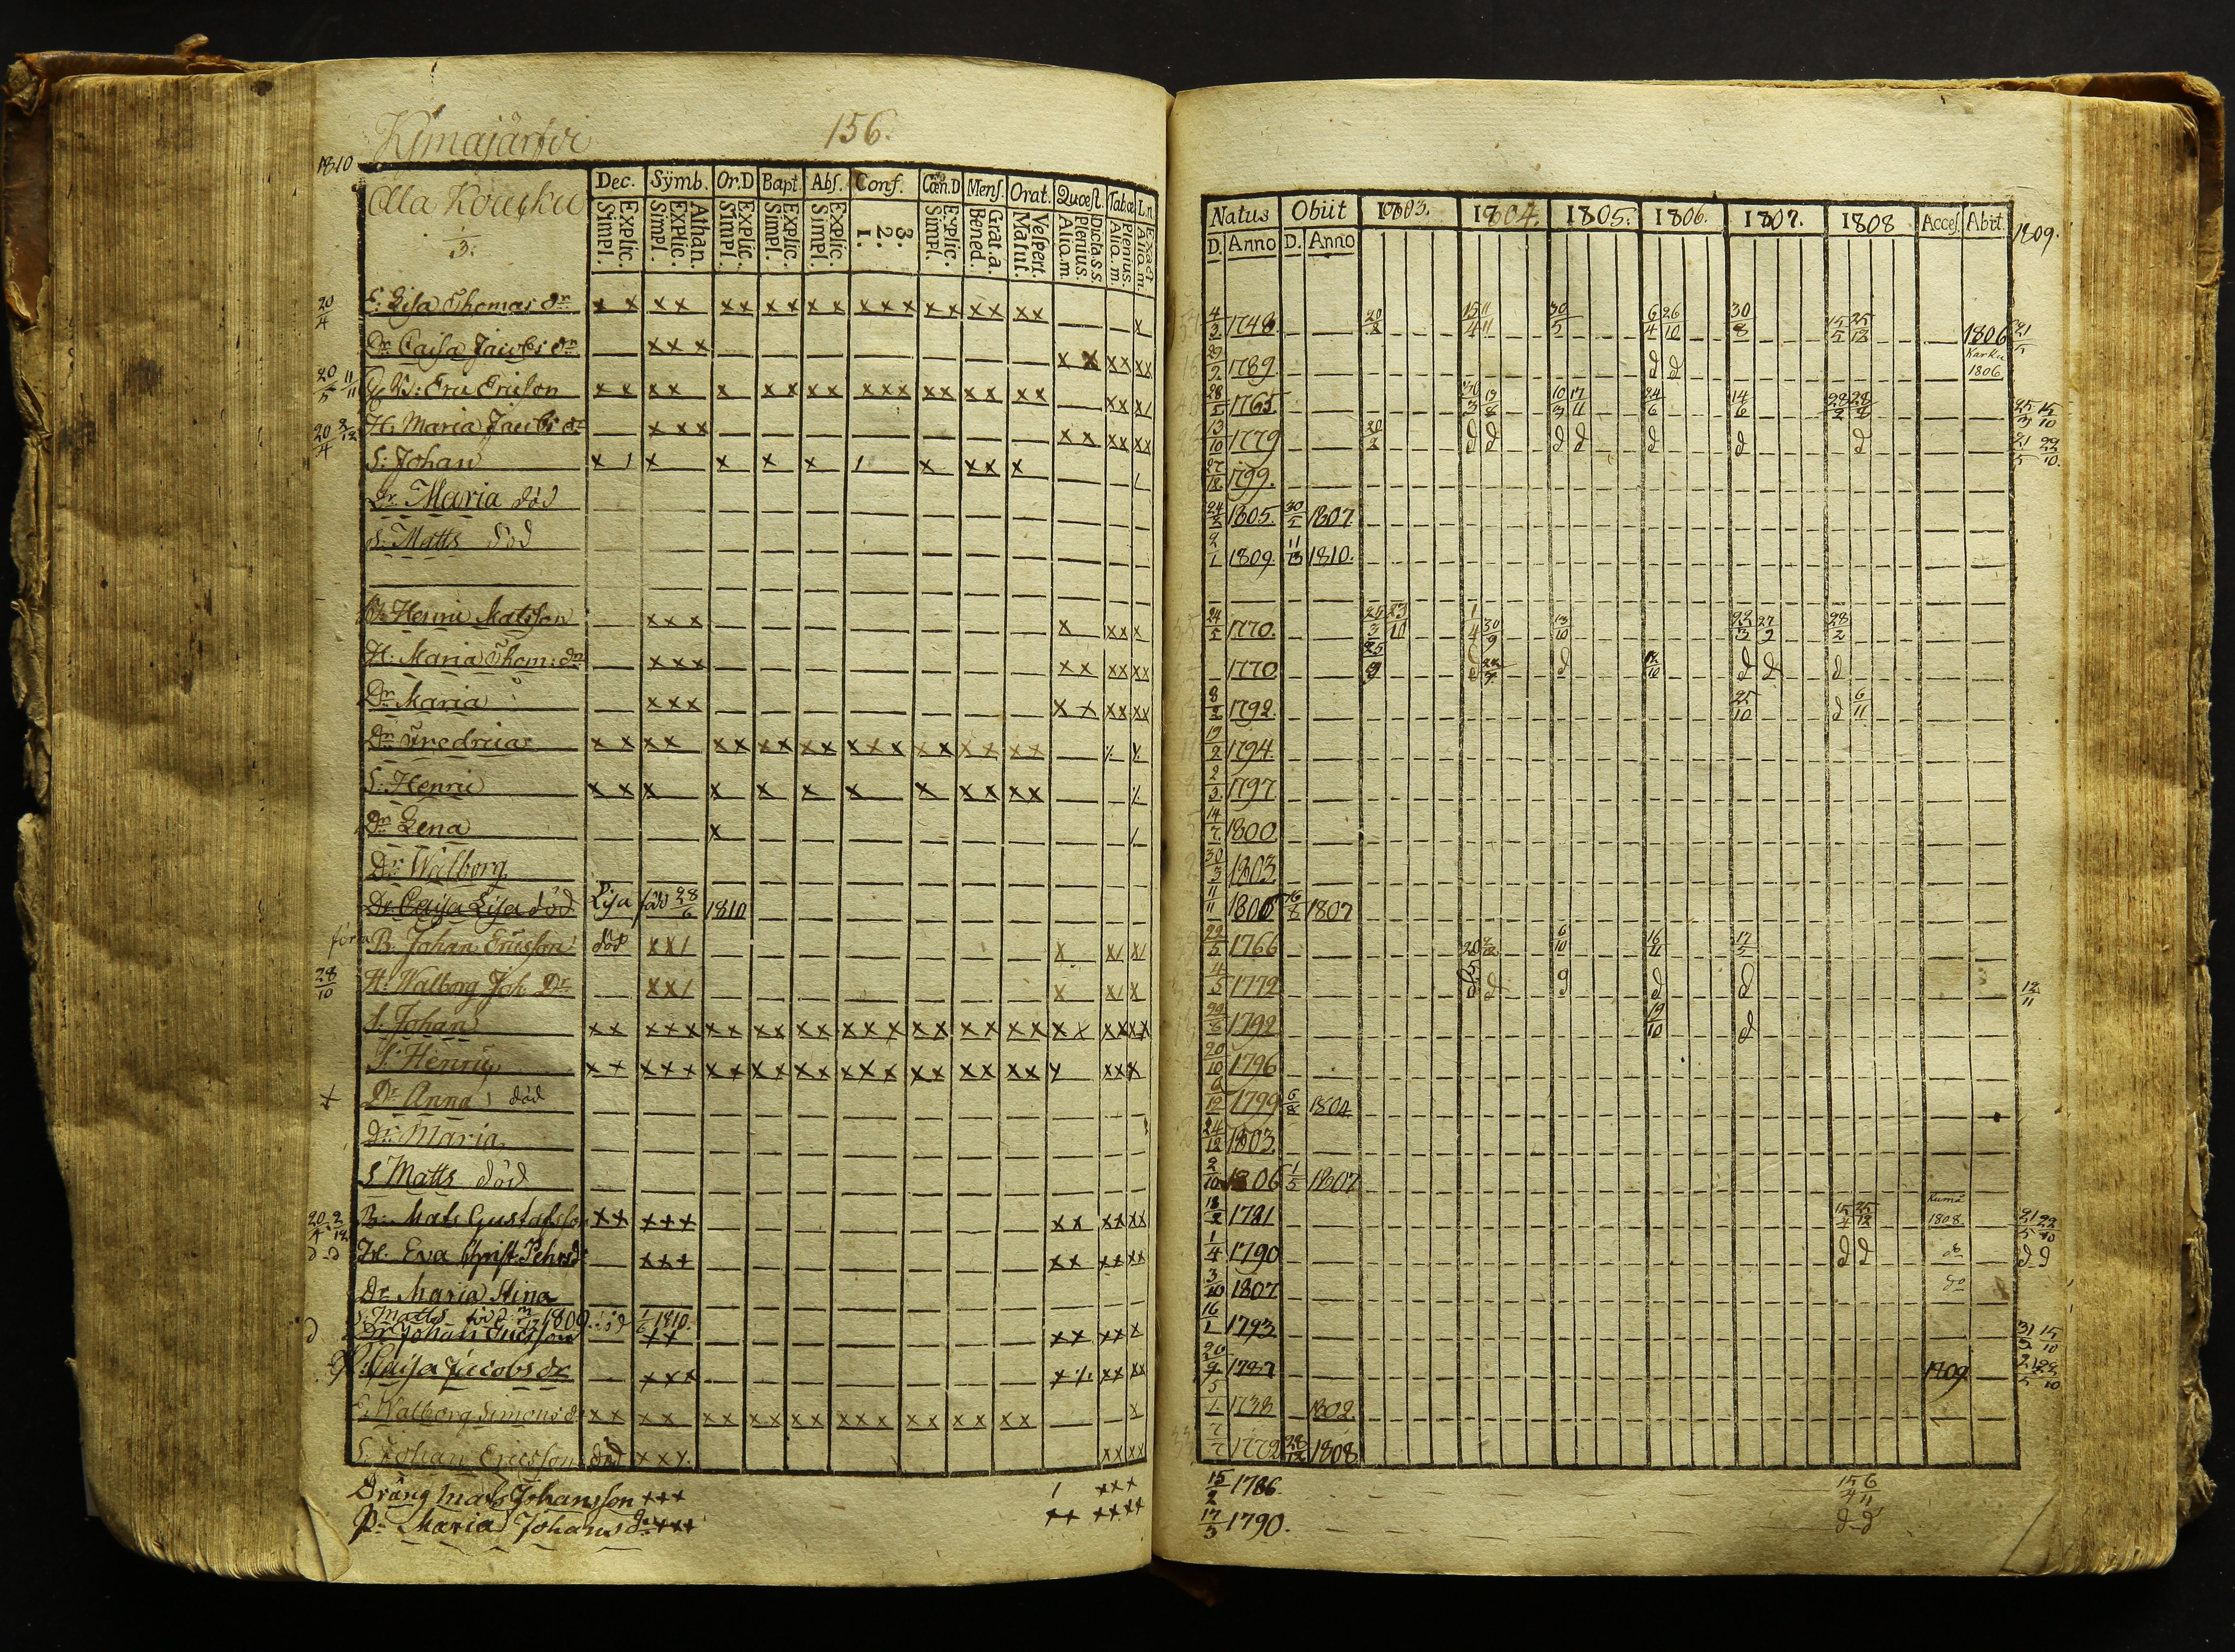 Kymajärfvi 156.
1810
Alla Kouchu
1/3:
Dec. Sÿmb. Or.D Bapt. Abſ. Conf. Cœn.D Menſ. Orat. Quœſt. Tabœ L.n.
Explic. Simpl. Athan. Explic. Simpl. Explic. Simpl. Explic. Simpl. Explic. Simpl. 3. 2. 1. Explic. Simpl. Grat.a. Bened. Veſpert. Matut. Dicta.s.s. Plenius. Alio.m. Plenius. Alio.m. Exact.
20/4 E: Lisa Thomas dr x x x x x x x x x x x x x x x x x x x x
Dr Caisa Jacobs dr x x x x x x x x x
20/5 11/11 B: Eric Ericson x x x x x x x x x x x x x x x x x x x
20/4 H. Maria Jacobs dr x x x x x x x x x
S: Johan x 1 x x x x 1 x x x x
Dr Maria död
S: Matts död
Henric Matsson x x x x x x x
H: Maria Thom: dr x x x x x x x x x
Dr Maria x x x x x x x x x
Dr Fredrica x x x x x x x x x x x x x x x x x x x
S: Henric x x x x x x x x x x x x
Dr Lena x
Dr Walborg
Dr Caisa Lisa död Lisa född 28/6 1810
B. Johan Ericsson död x x 1 x x 1 x 1
28/10 H. Walborg Joh. Dr x x 1 x x 1 x
S. Johan x x x x x x x x x x x x x x x x x x x x x x x x x x x
S: Henric x x x x x x x x x x x x x x x x x x x x x x x x
Dr Anna död
Dr Maria
S Matts död
20/4 2/12 B: Mats Gustafsson x x x x x x x x x x x
d d H. Eva Christ. Pehrsdr x x x x x x x x x
Dr Maria Stina
S. Matts född 1809. död 1/6 1810.
d Dr Johan Ericsson x x x x x x x
P: Caisa Jacobs dr x x x x x x x x
E: Walborg Simons dr x x x x x x x x x x x x x x x x x x x x
S. Johan Ericsson död x x x x x x x
Dräng Mats Johansson x x x 1 x x x
P. Maria Johans dr x x x x x x x x x
Natus Obiit 1803. 1804. 1805. 1806. 1807. 1808 Acceſ. Abiit. 1809.
D. Anno D. Anno
4/3 1748 20/8 15/4 11/11 30/5 6/4 26/10 30/8 15/5 25/12 1806 21/5
29/2 1789 d d Karku 1806
28/5 1765 13/8 10/3 17/11 24/6 14/6 28/2 28/8 25/3 15/10
13/10 1779 20/2 d d d d d d d 21/5 22/10
27/12 1799.
24/3 1805. 30/5 1807
2/1 1809 1810.
24/5 1770. 25/3 23/10 1/4 30/9 13/10 22/3 27/9 28/2
1770 25/9 d 12/10 d d d
8/2 1792. 25/10 d 6/11
19/2 1794.
2/3 1797
14/7 1800.
30/3 1803.
11/11 1806 16/8 1807
22/5 1766 20/5 6/10 16/11 17/5
4/5 1772 d d d d d 12/11
29/6 1792 19/10 d
20/10 1796
6/12 1799 6/8 1804
24/12 1803.
2/10 1806 1/5 1807
18/2 1781 15/4 25/12 Kumå 1808 21/5 22/10
1/4 1790 d d do d d
3/10 1807 do
16/1 1793 31/3 15/10
20/9 1787 1809 21/5 22/10
5/1 1738 1802.
7/7 1772 28/12 1808
15/2 1786 15/4 6/11
17/3 1790. d d